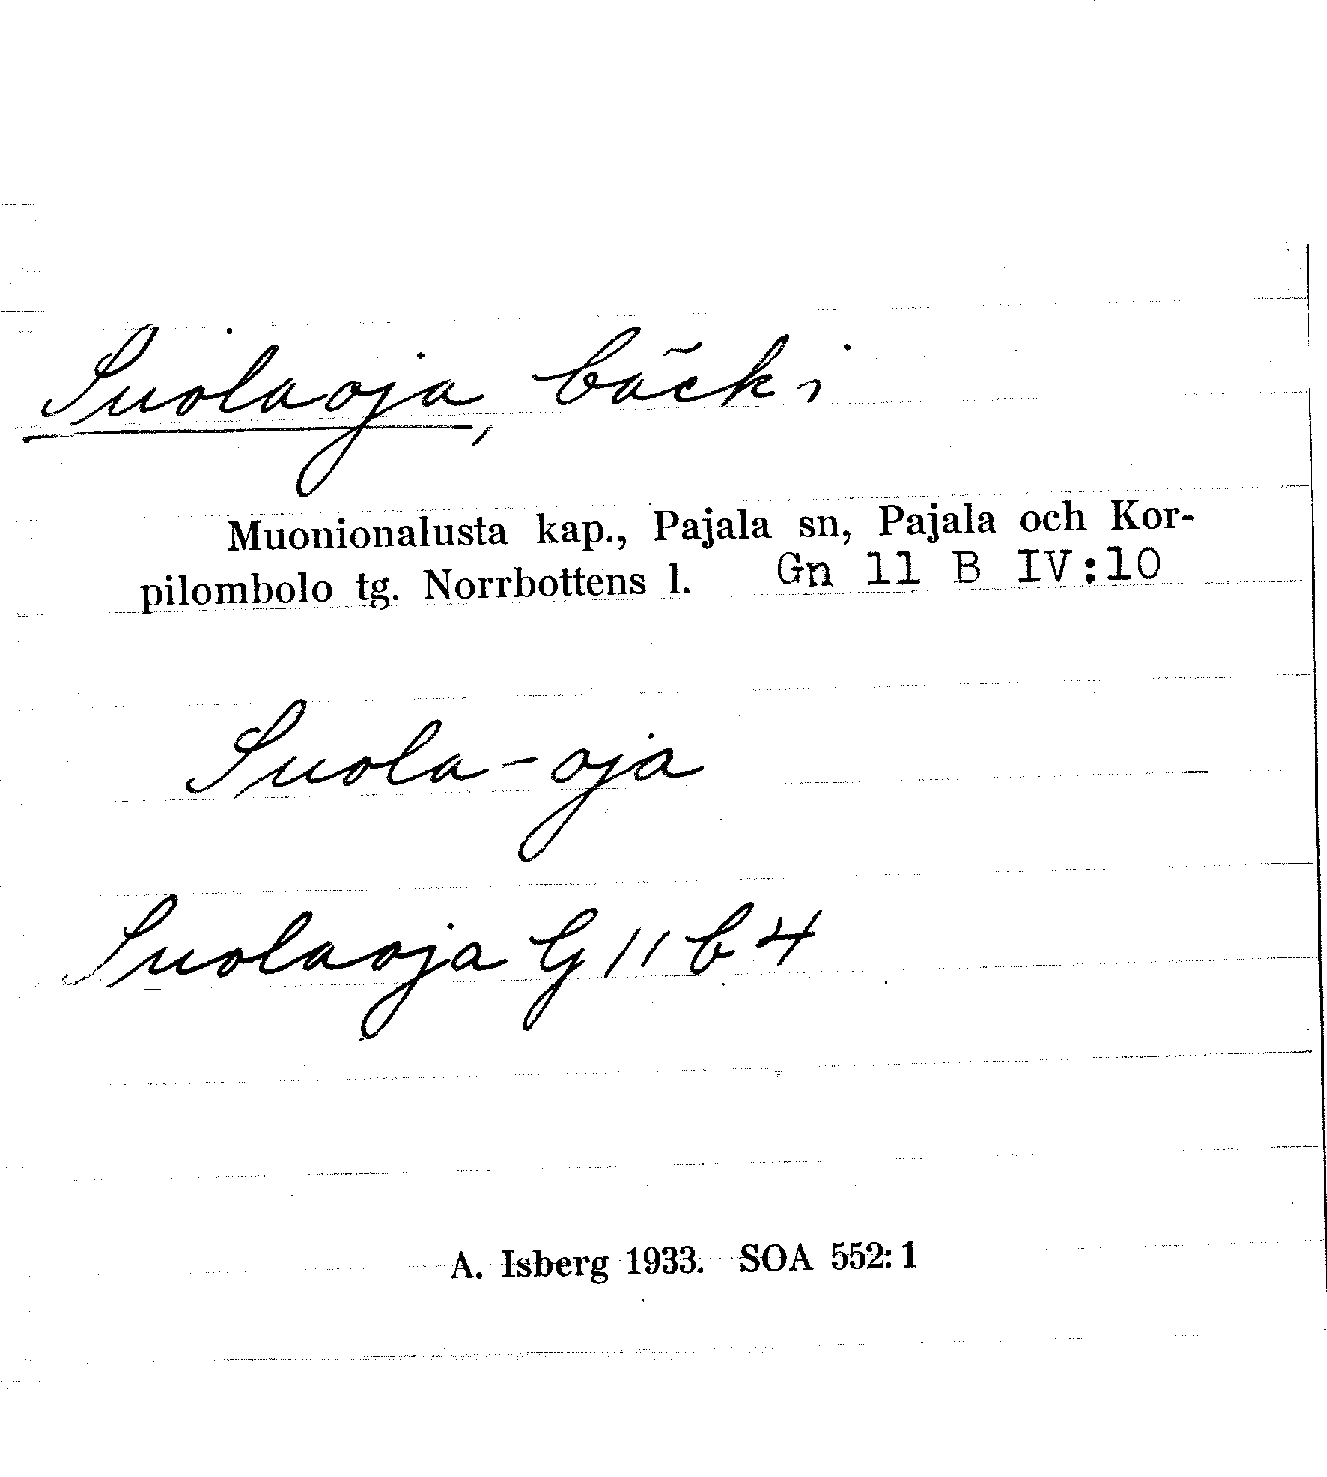 Suolaoja, bäck i
Muonionalusta kap., Pajala sn, Pajala och Kor-
pilombolo tg. Norrbottens l. Gn 11 B IV:10
Suola-oja
Suolaoja G 11 b 4
A. Isberg 1933. SOA 552:1